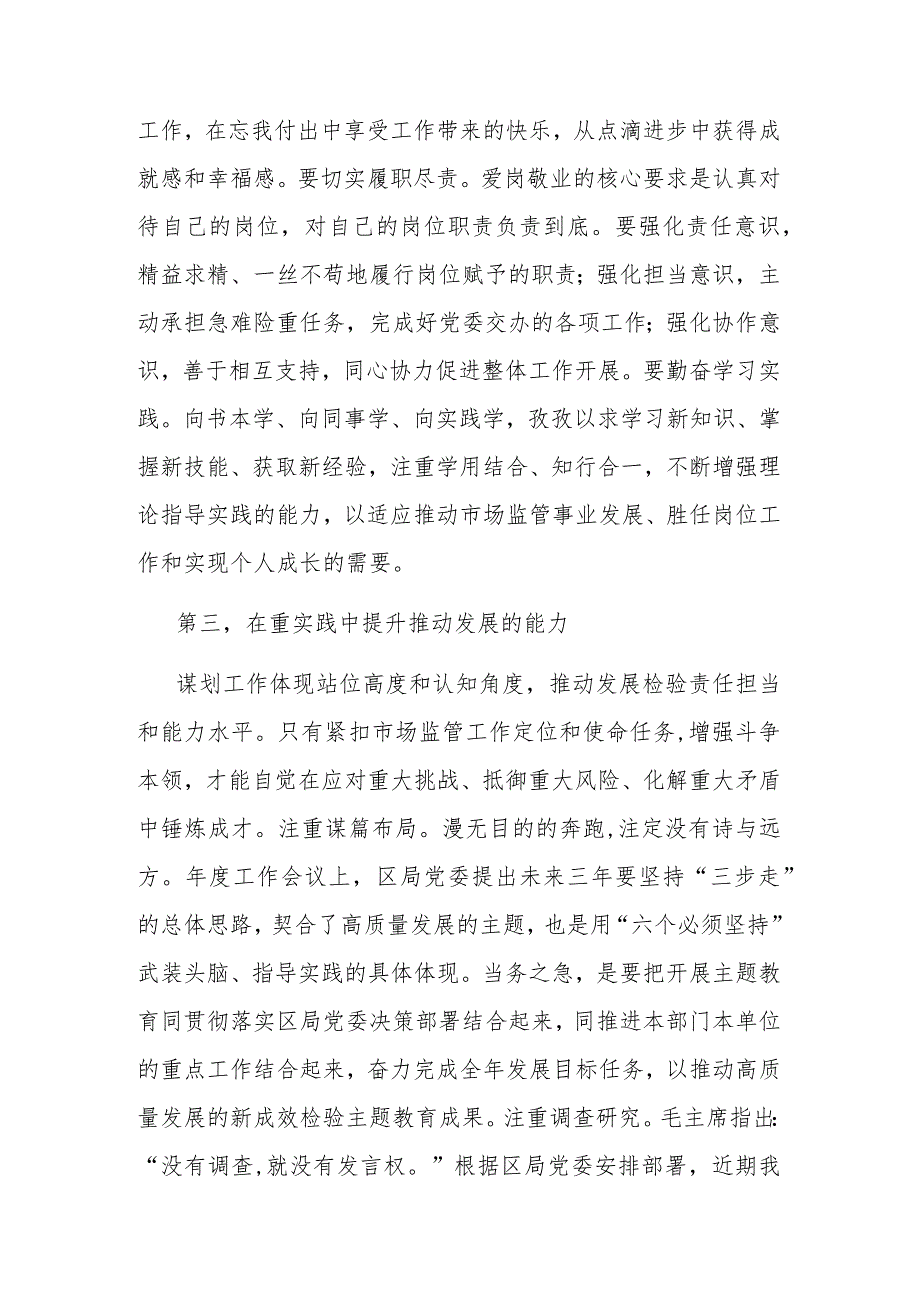 工作，在忘我付出中享受工作带来的快乐，从点滴进步中获得成
就感和幸福感。要切实履职尽责。爱岗敬业的核心要求是认真对
待自己的岗位，对自己的岗位职责负责到底。要强化责任意识，
精益求精、一丝不苟地履行岗位赋予的职责；强化担当意识，主
动承担急难险重任务，完成好党委交办的各项工作；强化协作意
识，善于相互支持，同心协力促进整体工作开展。要勤奋学习实
践。向书本学、向同事学、向实践学，孜孜以求学习新知识、掌
握新技能、获取新经验，注重学用结合、知行合一，不断增强理
论指导实践的能力，以适应推动市场监管事业发展、胜任岗位工
作和实现个人成长的需要。
第三，在重实践中提升推动发展的能力
谋划工作体现站位高度和认知角度，推动发展检验责任担当
和能力水平。只有紧扣市场监管工作定位和使命任务,增强斗争
本领，才能自觉在应对重大挑战、抵御重大风险、化解重大矛盾
中锤炼成才。注重谋篇布局。漫无目的的奔跑,注定没有诗与远
方。年度工作会议上，区局党委提出未来三年要坚持“三步走”
的总体思路,契合了高质量发展的主题,也是用“六个必须坚持”
武装头脑、指导实践的具体体现。当务之急，是要把开展主题教
育同贯彻落实区局党委决策部署结合起来，同推进本部门本单位
的重点工作结合起来，奋力完成全年发展目标任务，以推动高质
量发展的新成效检验主题教育成果。注重调查研究。毛主席指出：
“没有调查,就没有发言权。”根据区局党委安排部署，近期我